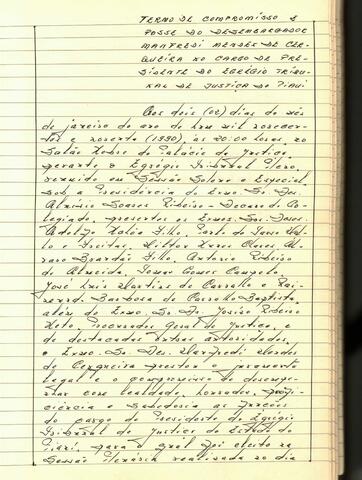 TERMO DE COMPROMISSO E
POSSE DO DESEMBARGADOR
MANFREDI MENDES DE CER-
QUEIRA NO CARGO DE PRE-
SIDENTE DO EGRÉGIO TRIBU-
NAL DE JUSTIÇA DO PIAUÍ
Aos dois (02) dias do mês
de janeiro do ano de um mil novecen-
tos e noventa (1990), às 20:00 horas, no
Salão Nobre do Palácio da Justiça
perante o Egrégio Tribunal Pleno,
reunido em Sessão Solene e Especial,
sob a Presidência do Exmo. Sr. Des.
Soares Ribeiro - Decano do Co-
legiado, presentes os Exmos. Srs. Deses.
Filho, Paulo de Tarso Mel-
lo e Freitas, Nunes Chaves, Ál-
varo Brandão Filho, Antônio Ribeiro
de Almeida, Gomes Campelo,
José Luís Martins de Carvalho e Rai-
mundo Barbosa de Carvalho Baptista,
além do Exmo. Sr. Dr. Ribeiro
Neto, Procurador Geral de Justiça, e
de destacadas outras autoridades,
o Exmo. Sr. Des. Manfredi Mendes
de Cerqueira prestou o juramento
legal e o compromisso de desempe-
nhar com lealdade, honradez,
ciência e sabedoria as funções
do cargo de Presidente do Egrégio
Tribunal de Justiça do Estado do
Piauí, para o qual foi eleito na
Sessão Plenária realizada no dia